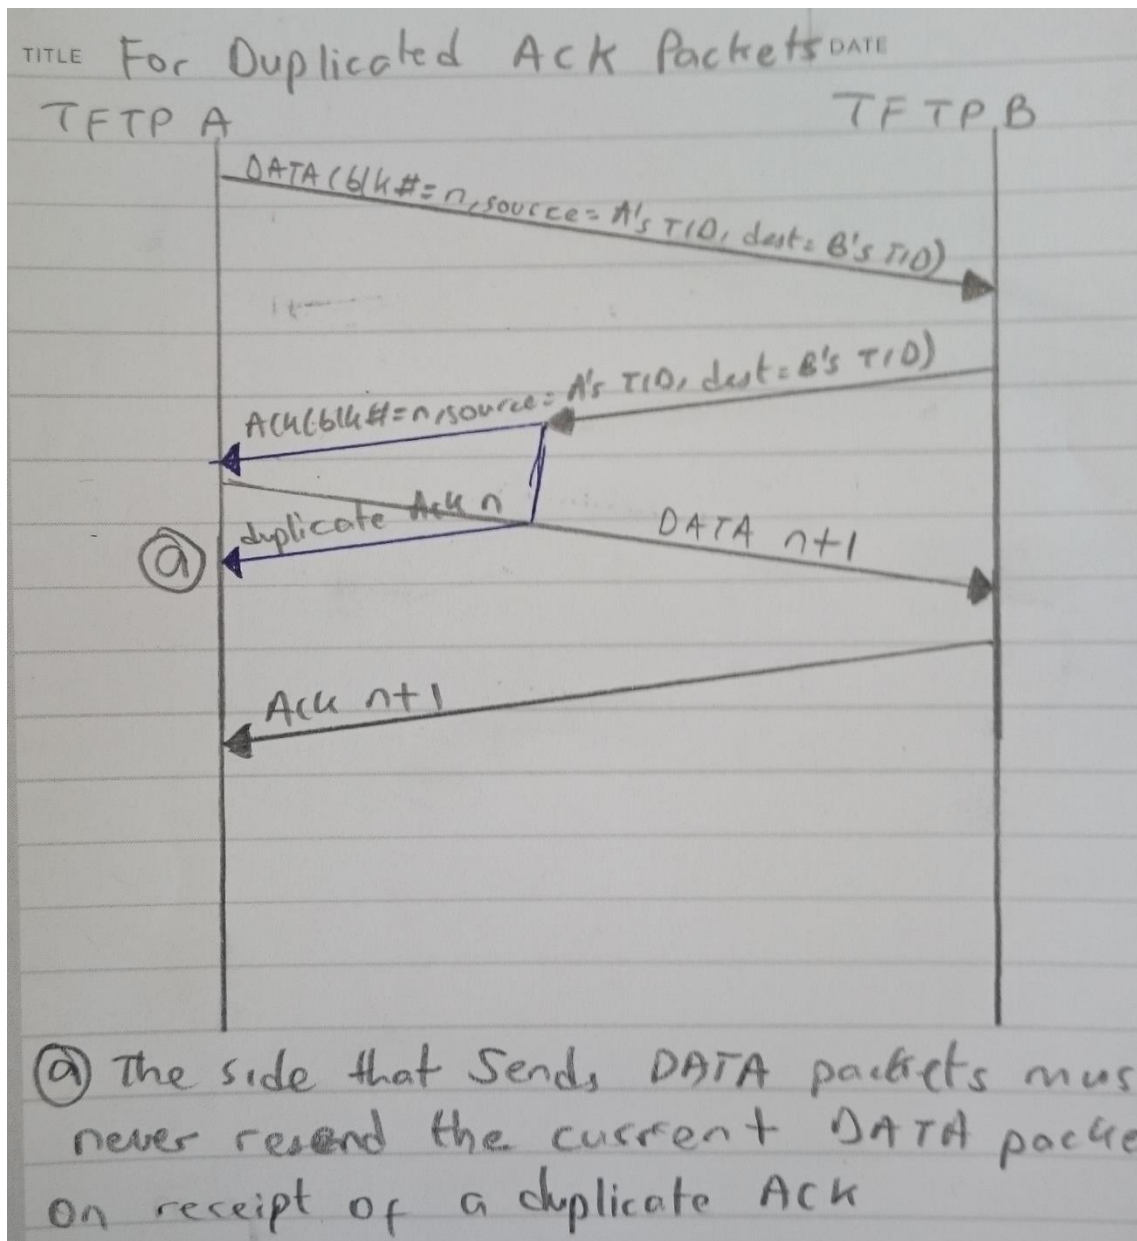 TITLE For Duplicated Ack Packets DATE
TFTP A TFTP B
DATA (blk#=n, source= A's TID, dest= B's TID)
Ack(blk#=n, source= A's TID, dest= B's TID)
duplicate Ack n
DATA n+1
a
Ack n+1
a The side that sends DATA packets mus
never resend the current DATA packe
on receipt of a duplicate ACK